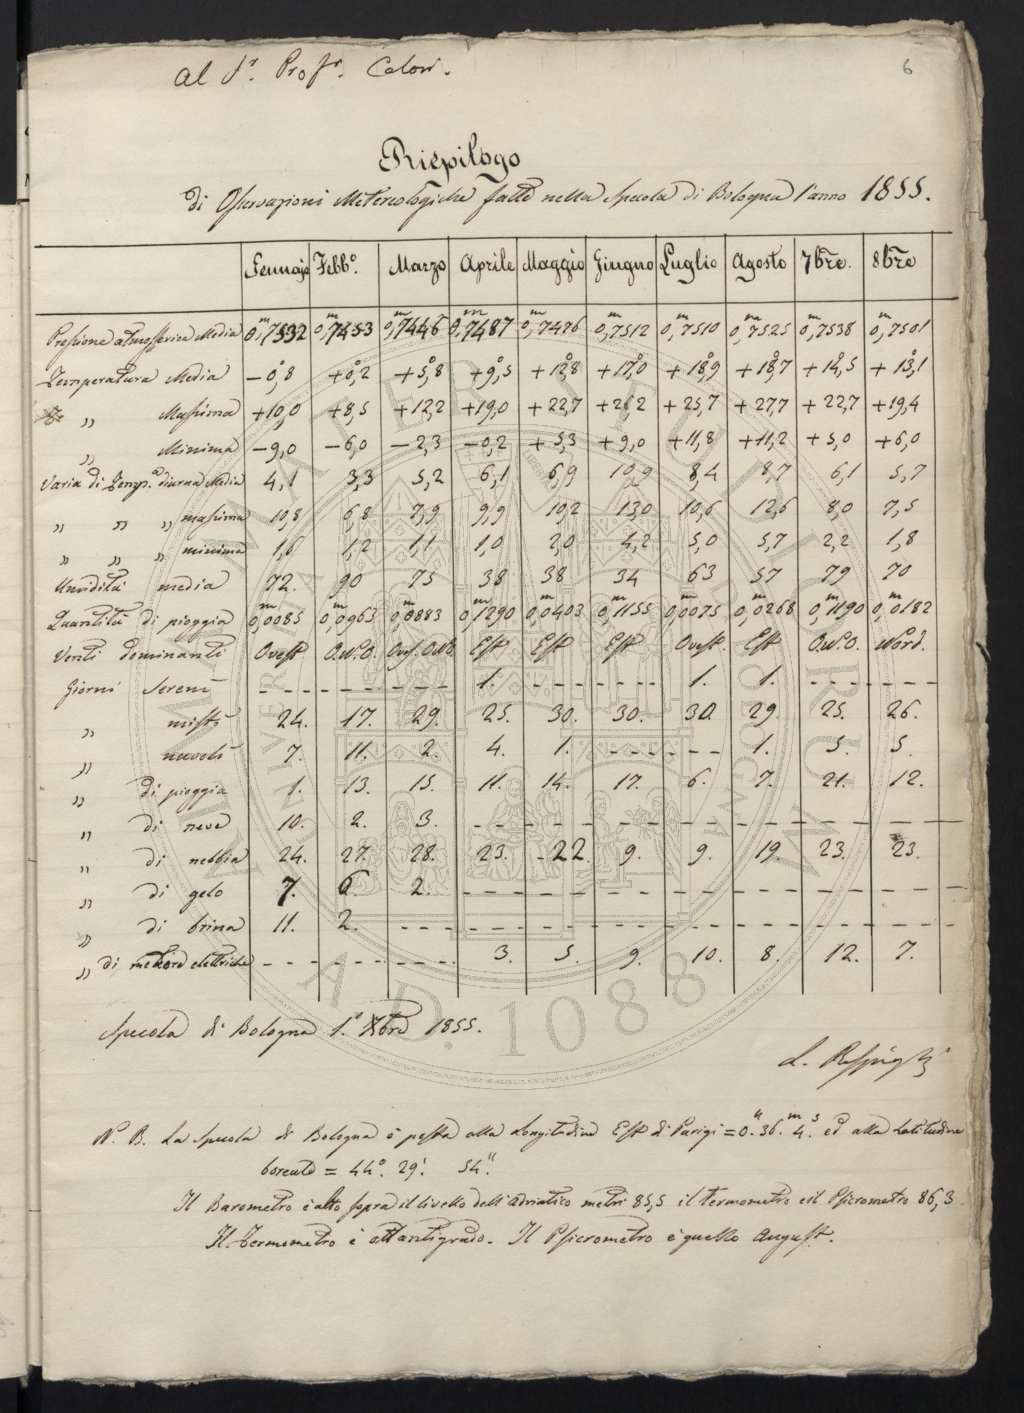 al Sr. Profr. Calori.
6
Riepilogo
di Osservazioni Metereologiche fatte nella Specola di Bologna l'anno 1855.
Gennajo Febbo. Marzo Aprile Maggio Giugno Luglio Agosto 7bre. 8bre
Pressione atmosferica Media 0,m7532 0,m7453 0,m7446 0,m7487 0,m7476 0,m7512 0,m7510 0,m7525 0,m7538 0,m7501
Temperatura Media -0°,8 +0°,2 +5°,8 +9°,5 +12°,8 +17°,0 +18°,9 +18°,7 +14°,5 +13°,1
„ Massima +10,0 +8,5 +12,2 +19,0 +22,7 +26,2 +25,7 +27,7 +22,7 +19,4
„ Minima -9,0 -6,0 -2,3 -0,2 +5,3 +9,0 +11,8 +11,2 +5,0 +6,0
Varia di Temp.a diurna Media 4,1 3,3 5,2 6,1 6,9 10,9 8,4 8,7 6,1 5,7
„ „ „ massima 10,8 6,8 7,9 9,9 10,2 13,0 10,6 12,6 8,0 7,5
„ „ „ minima 1,6 1,2 1,1 1,0 2,0 4,2 5,0 5,7 2,2 1,8
Umidità media 72. 90 75 38 38 34 63 57 79 70
Quantità di pioggia 0,m0085 0,m0963 0,m0883 0,m1290 0,m0403 0,m1155 0,m0075 0,m0268 0,m1190 0,m0182
Venti dominanti Ovest O.N.O. Ovest. O.N.O. Est Est Est Ovest. Est O.N.O. Nord.
Giorni Sereni - - - 1. - - 1. 1. - -
„ misti 24. 17. 29. 25. 30. 30. 30. 29. 25. 26.
„ nuvoli 7. 11. 2. 4. 1. - - 1. 5. 5.
„ di pioggia 1. 13. 15. 11. 14. 17. 6. 7. 21. 12.
„ di neve 10. 2. 3. - - - - - - -
„ di nebbia 24. 27. 28. 23. 22 9. 9. 19. 23. 23.
„ di gelo 7. 6 2. - - - - - - -
„ di brina 11. 2. - - - - - - - -
„ di meteore elettriche - - - 3. 5. 9. 10. 8. 12. 7.
Specola di Bologna 1.° Xbre 1855.
L. Respighi
N. B. La Specola di Bologna è posta alla Longitudine Est di Parigi = 0.h 36.m 4.s ed alla Latitudine
boreale = 44°. 29'. 54''.
Il Barometro è alto sopra il livello dell'Adriatico metri 85,5 il termometro e il Psicrometro 86,3
Il Termometro è ottantigrado. Il Psicrometro è quello August.
ALMA MATER STUDIORUM
A.D. 1088